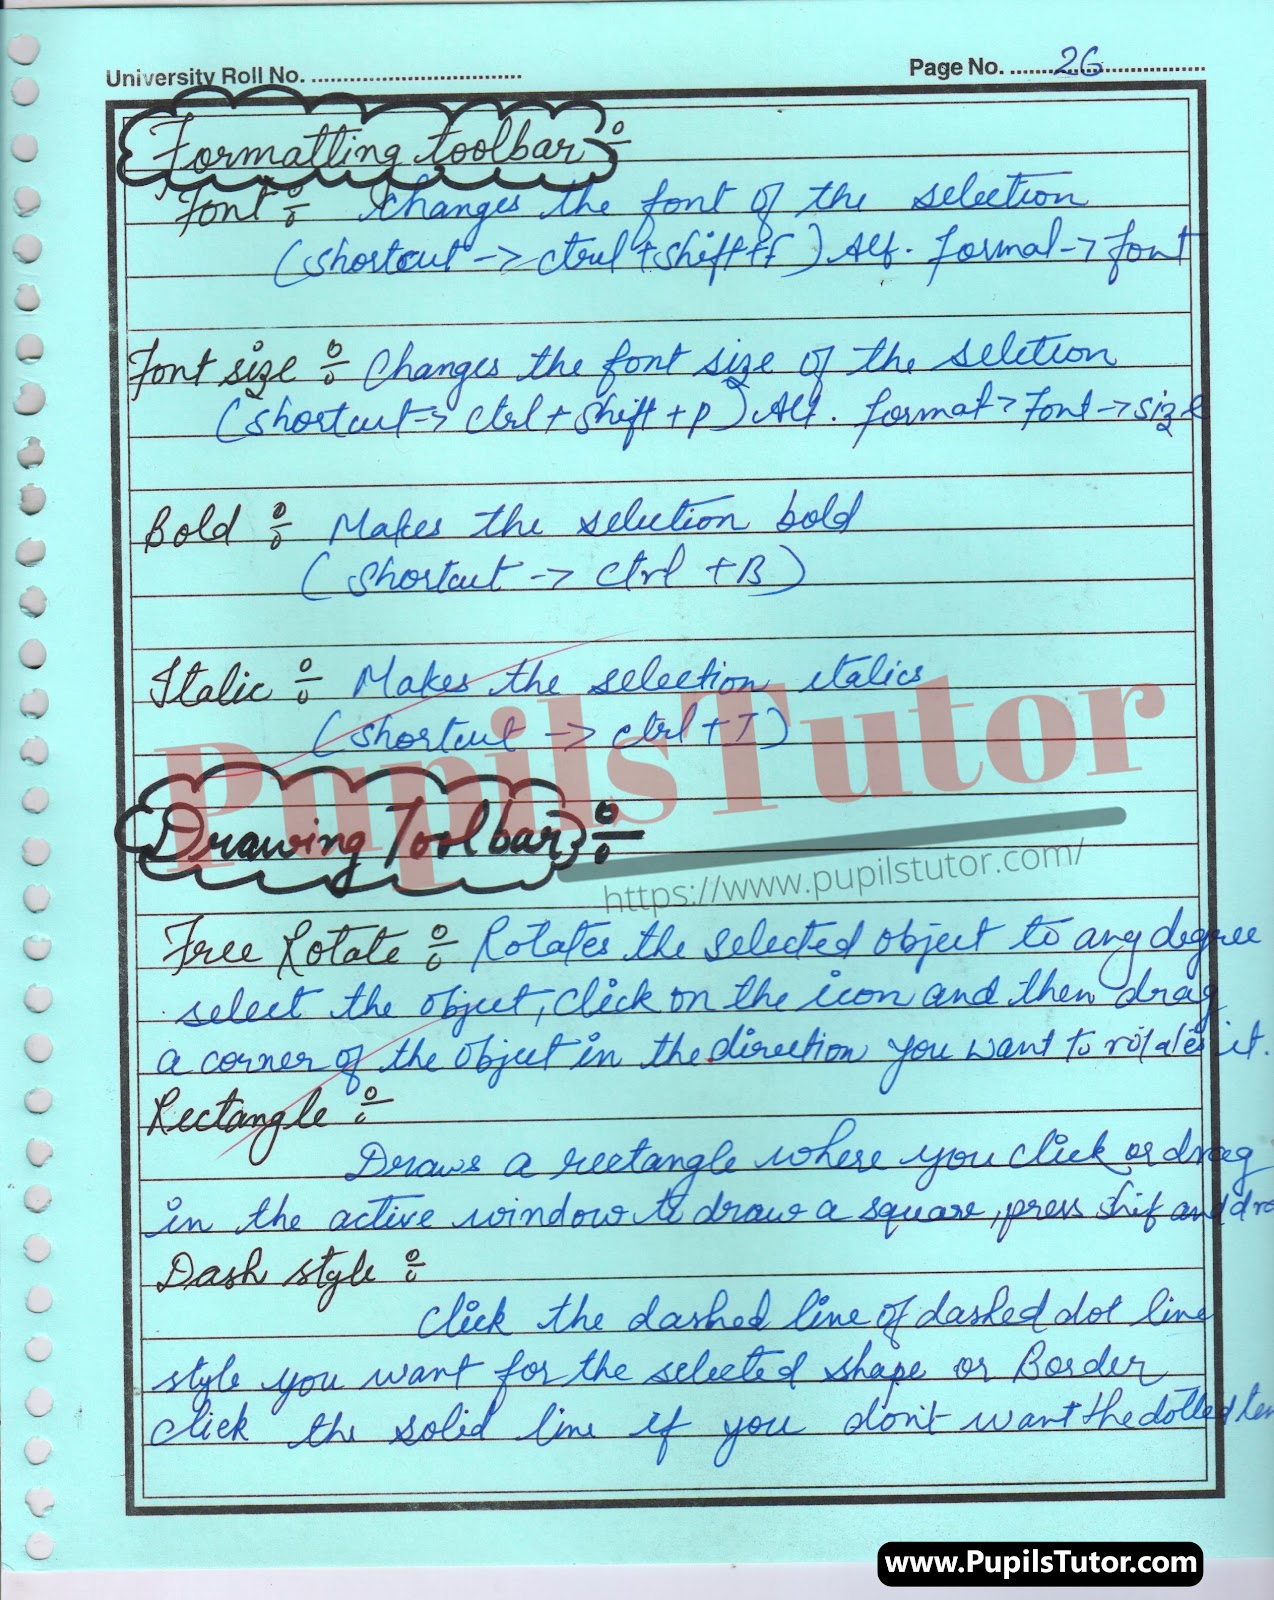 University Roll No. ................................
Page No. ....26....
Formatting toolbar ÷
Font ÷ Changes the font of the selection
(Shortcut -> ctrl +shift+f) Alt. format -> font
Font size ÷ Changes the font size of the seletion
(shortcut-> ctrl + shift + p) Alt. format > Font -> size
Bold ÷ Makes the selection bold
(Shortcut -> ctrl +B)
Italic ÷ Makes the selection italics
(Shortcut -> ctrl +I)
PupilsTutor
Drawing Toolbar ÷
https://www.pupilstutor.com/
Free Rotate ÷ Rotates the selected object to any degree
select the object, click on the icon and then drag
a corner of the object in the direction you want to rotates it.
Rectangle ÷
Draws a rectangle where you click or drag
in the active window to draw a square, press shif and
Dash style ÷
click the dashed line of dashed dot line
style you want for the selected shape or Border
click the solid line if you don't want the dotted
www.PupilsTutor.com